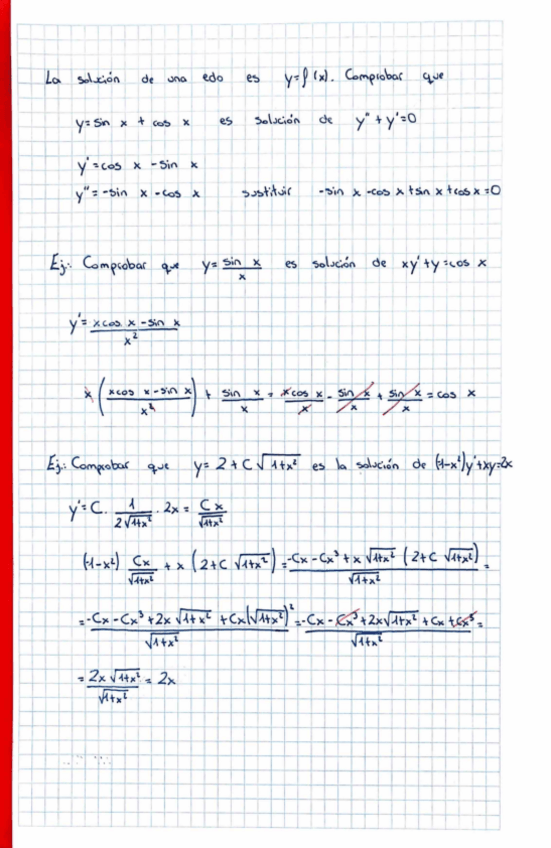 La solución de una edo es y=f(x). Comprobar que
y=sin x + cos x es solución de y''+y'=0
y'=cos x -sin x
y''=-sin x -cos x sustituir -sin x -cos x +sin x +cos x =0
Ej: Comprobar que y= sin x / x es solución de xy'+y=cos x
y'= xcos x -sin x / x²
x ( xcos x -sin x / x² ) + sin x / x = xcos x / x - sin x / x + sin x / x = cos x
Ej: Comprobar que y= 2+C √1+x² es la solución de (-1-x²)y'+xy=2x
y'=C. 1 / 2√1+x² . 2x = Cx / √1+x²
(-1-x²) Cx / √1+x² + x (2+C √1+x²) = -Cx -Cx³ +x √1+x² (2+C √1+x²) / √1+x² =
= -Cx -Cx³ +2x √1+x² +Cx(√1+x²)² / √1+x² = -Cx -Cx³ +2x√1+x² +Cx +Cx³ / √1+x² =
= 2x √1+x² / √1+x² = 2x